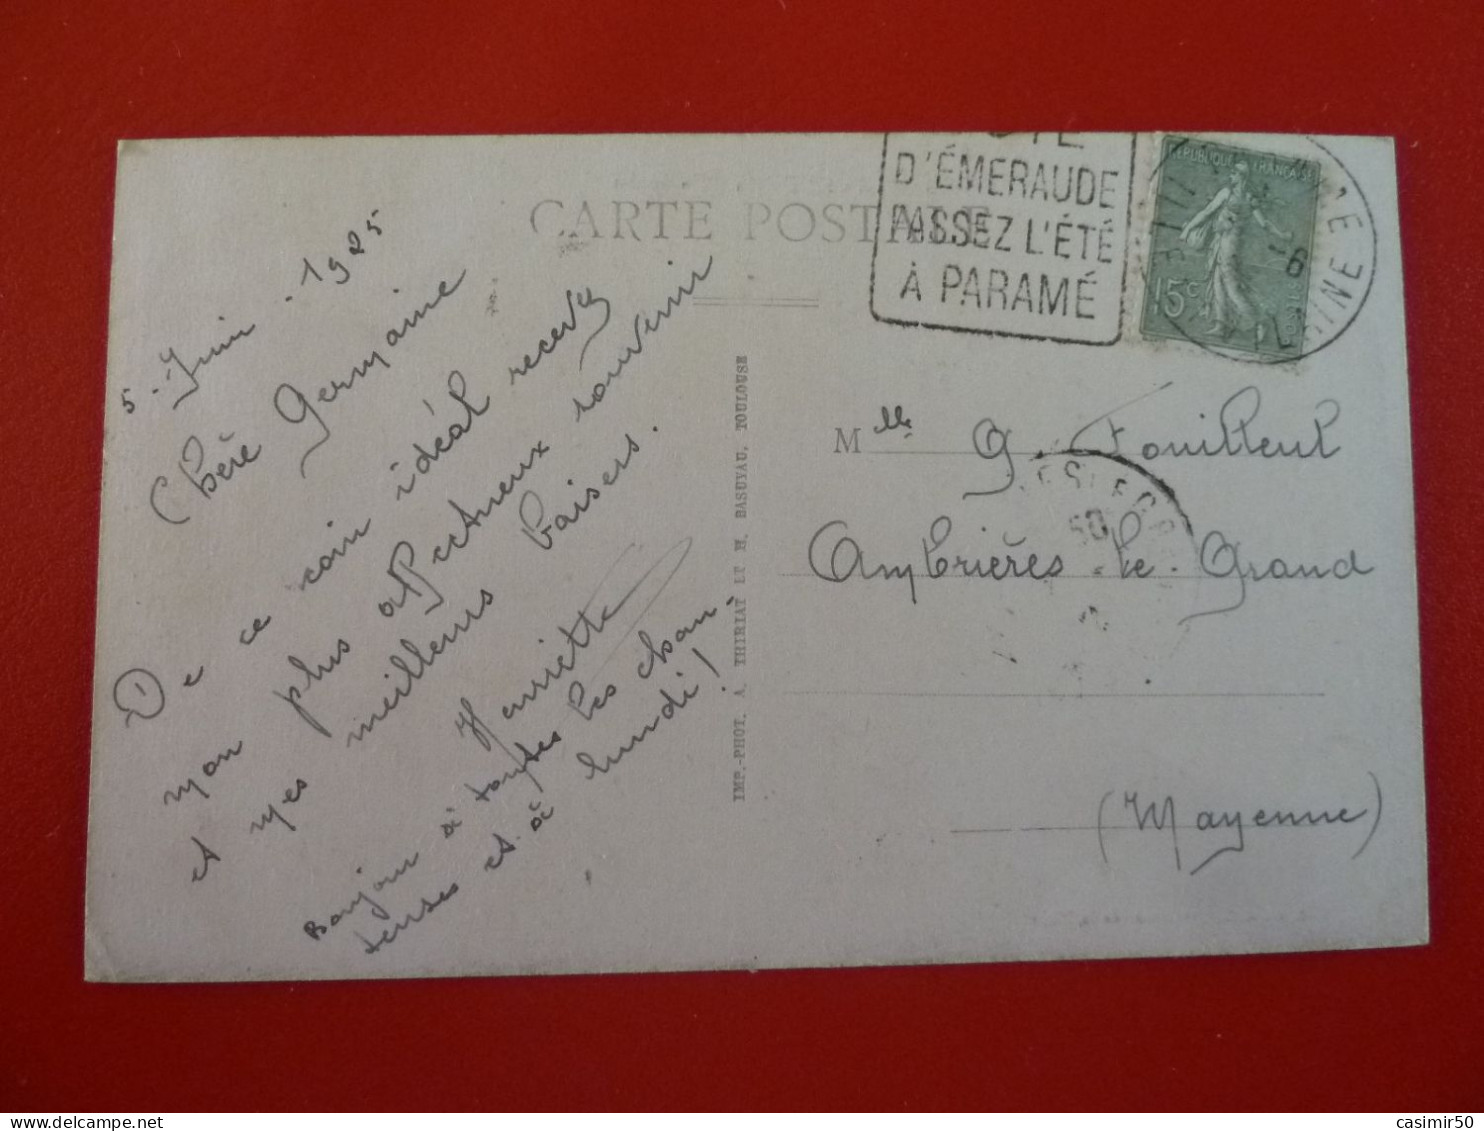 CARTE POSTALE
D'ÉMERAUDE
PASSEZ L'ÉTÉ
À PARAMÉ
REPUBLIQUE FRANÇAISE
15c
5. Juin. 1925
Chère Germaine
De ce coin idéal recevez
mon plus affectueux souvenir
et mes meilleurs baisers.
Henriette
Bonjour à toutes les chan-
teuses et à lundi!
IMP.-PHOT. A. THIRIAT ET M. BASUYAU, TOULOUSE
Mlle G. Fouilleul
Ambrières-le-Grand
(Mayenne)
casimir50